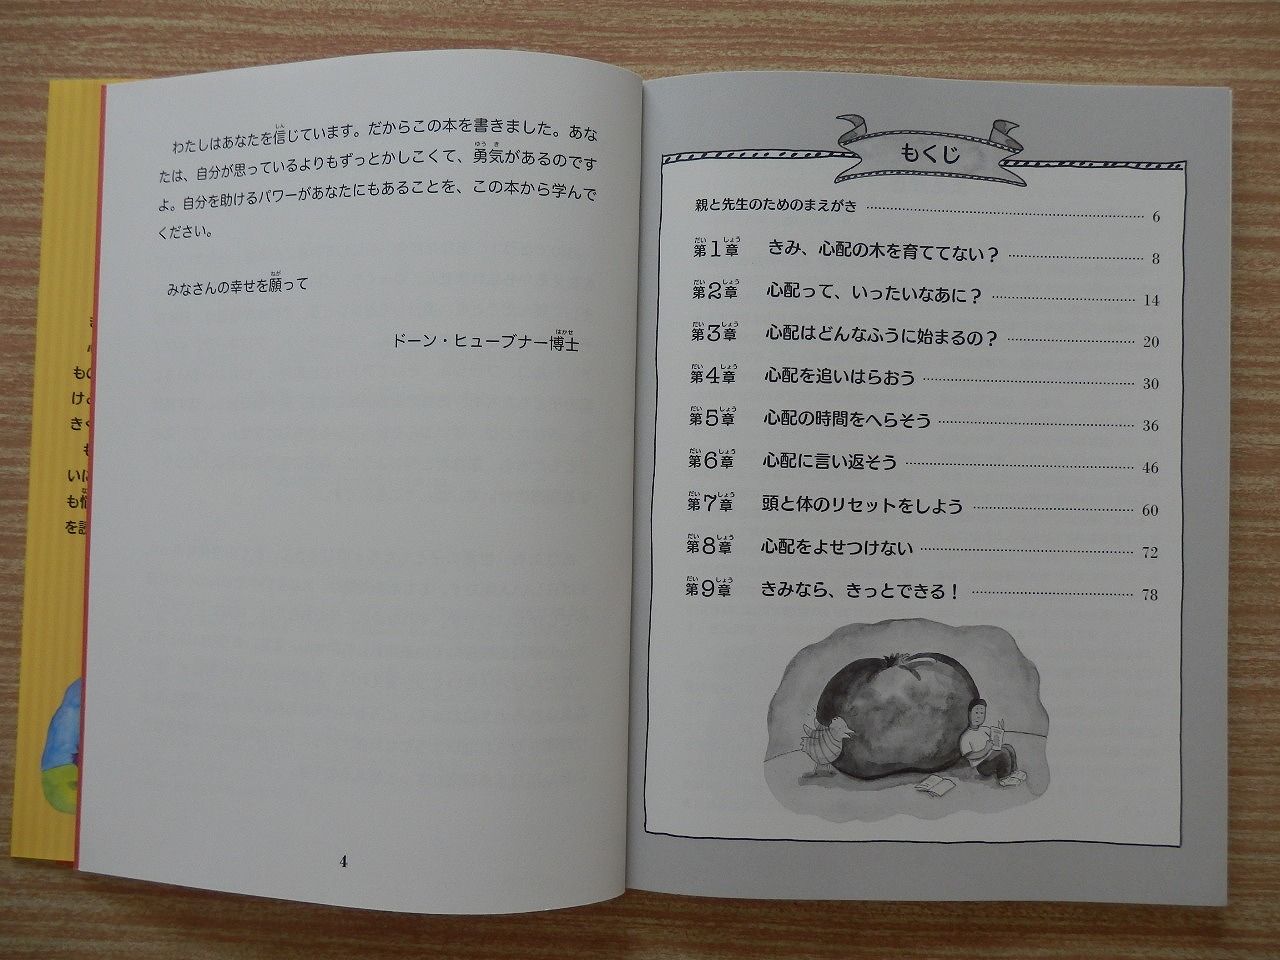 わたしはあなたを信じています。だからこの本を書きました。あな
たは、自分が思っているよりもずっとかしこくて、勇気があるのです
よ。自分を助けるパワーがあなたにもあることを、この本から学んで
ください。
みなさんの幸せを願って
ドーン・ヒューブナー博士
4
もくじ
親と先生のためのまえがき 6
第1章 きみ、心配の木を育ててない？ 8
第2章 心配って、いったいなあに？ 14
第3章 心配はどんなふうに始まるの？ 20
第4章 心配を追いはらおう 30
第5章 心配の時間をへらそう 36
第6章 心配に言い返そう 46
第7章 頭と体のリセットをしよう 60
第8章 心配をよせつけない 72
第9章 きみなら、きっとできる！ 78